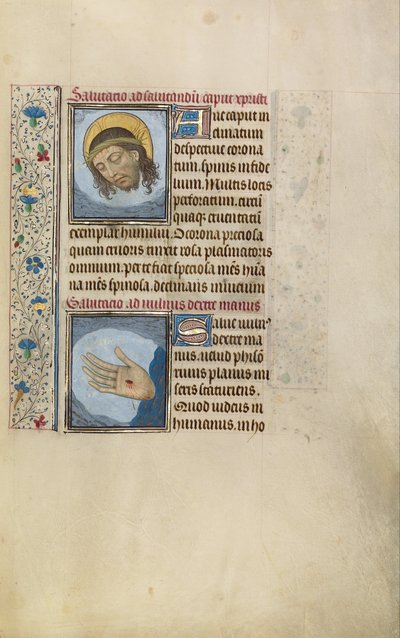 Salutacio ad salutandū caput xpristi
Aue caput in
clinatum
despectiue corona
tum. spinis infide
lium. Multis locis
perforatum. circū
quaq; cruentatū
exemplar humiliū. O corona preciosa
quam cruoris tinxit rosa plasmatoris
omnium. per te fiat speciosa mēs hūa
na mēs spinosa. declinans in uicium
Salutacio ad uulnus dextre manus
Salue uuln9
dextre ma
nus. uelud
riuus planus mi
seris scaturiens.
Quod uidens in
humanus. in ho